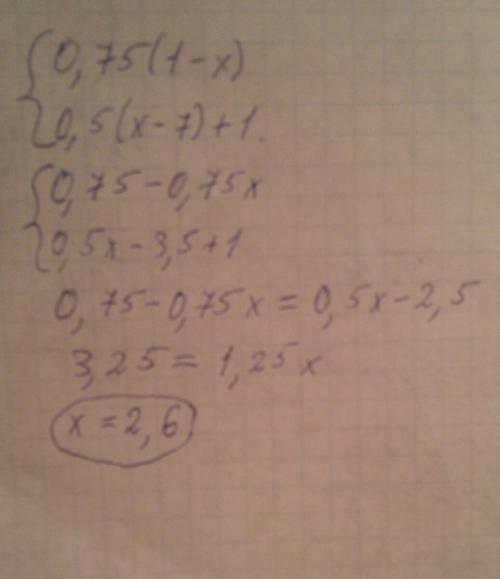 0,75(1-x)
0,5(x-7)+1.
0,75-0,75x
0,5x-3,5+1
0,75-0,75x=0,5x-2,5
3,25=1,25x
x=2,6